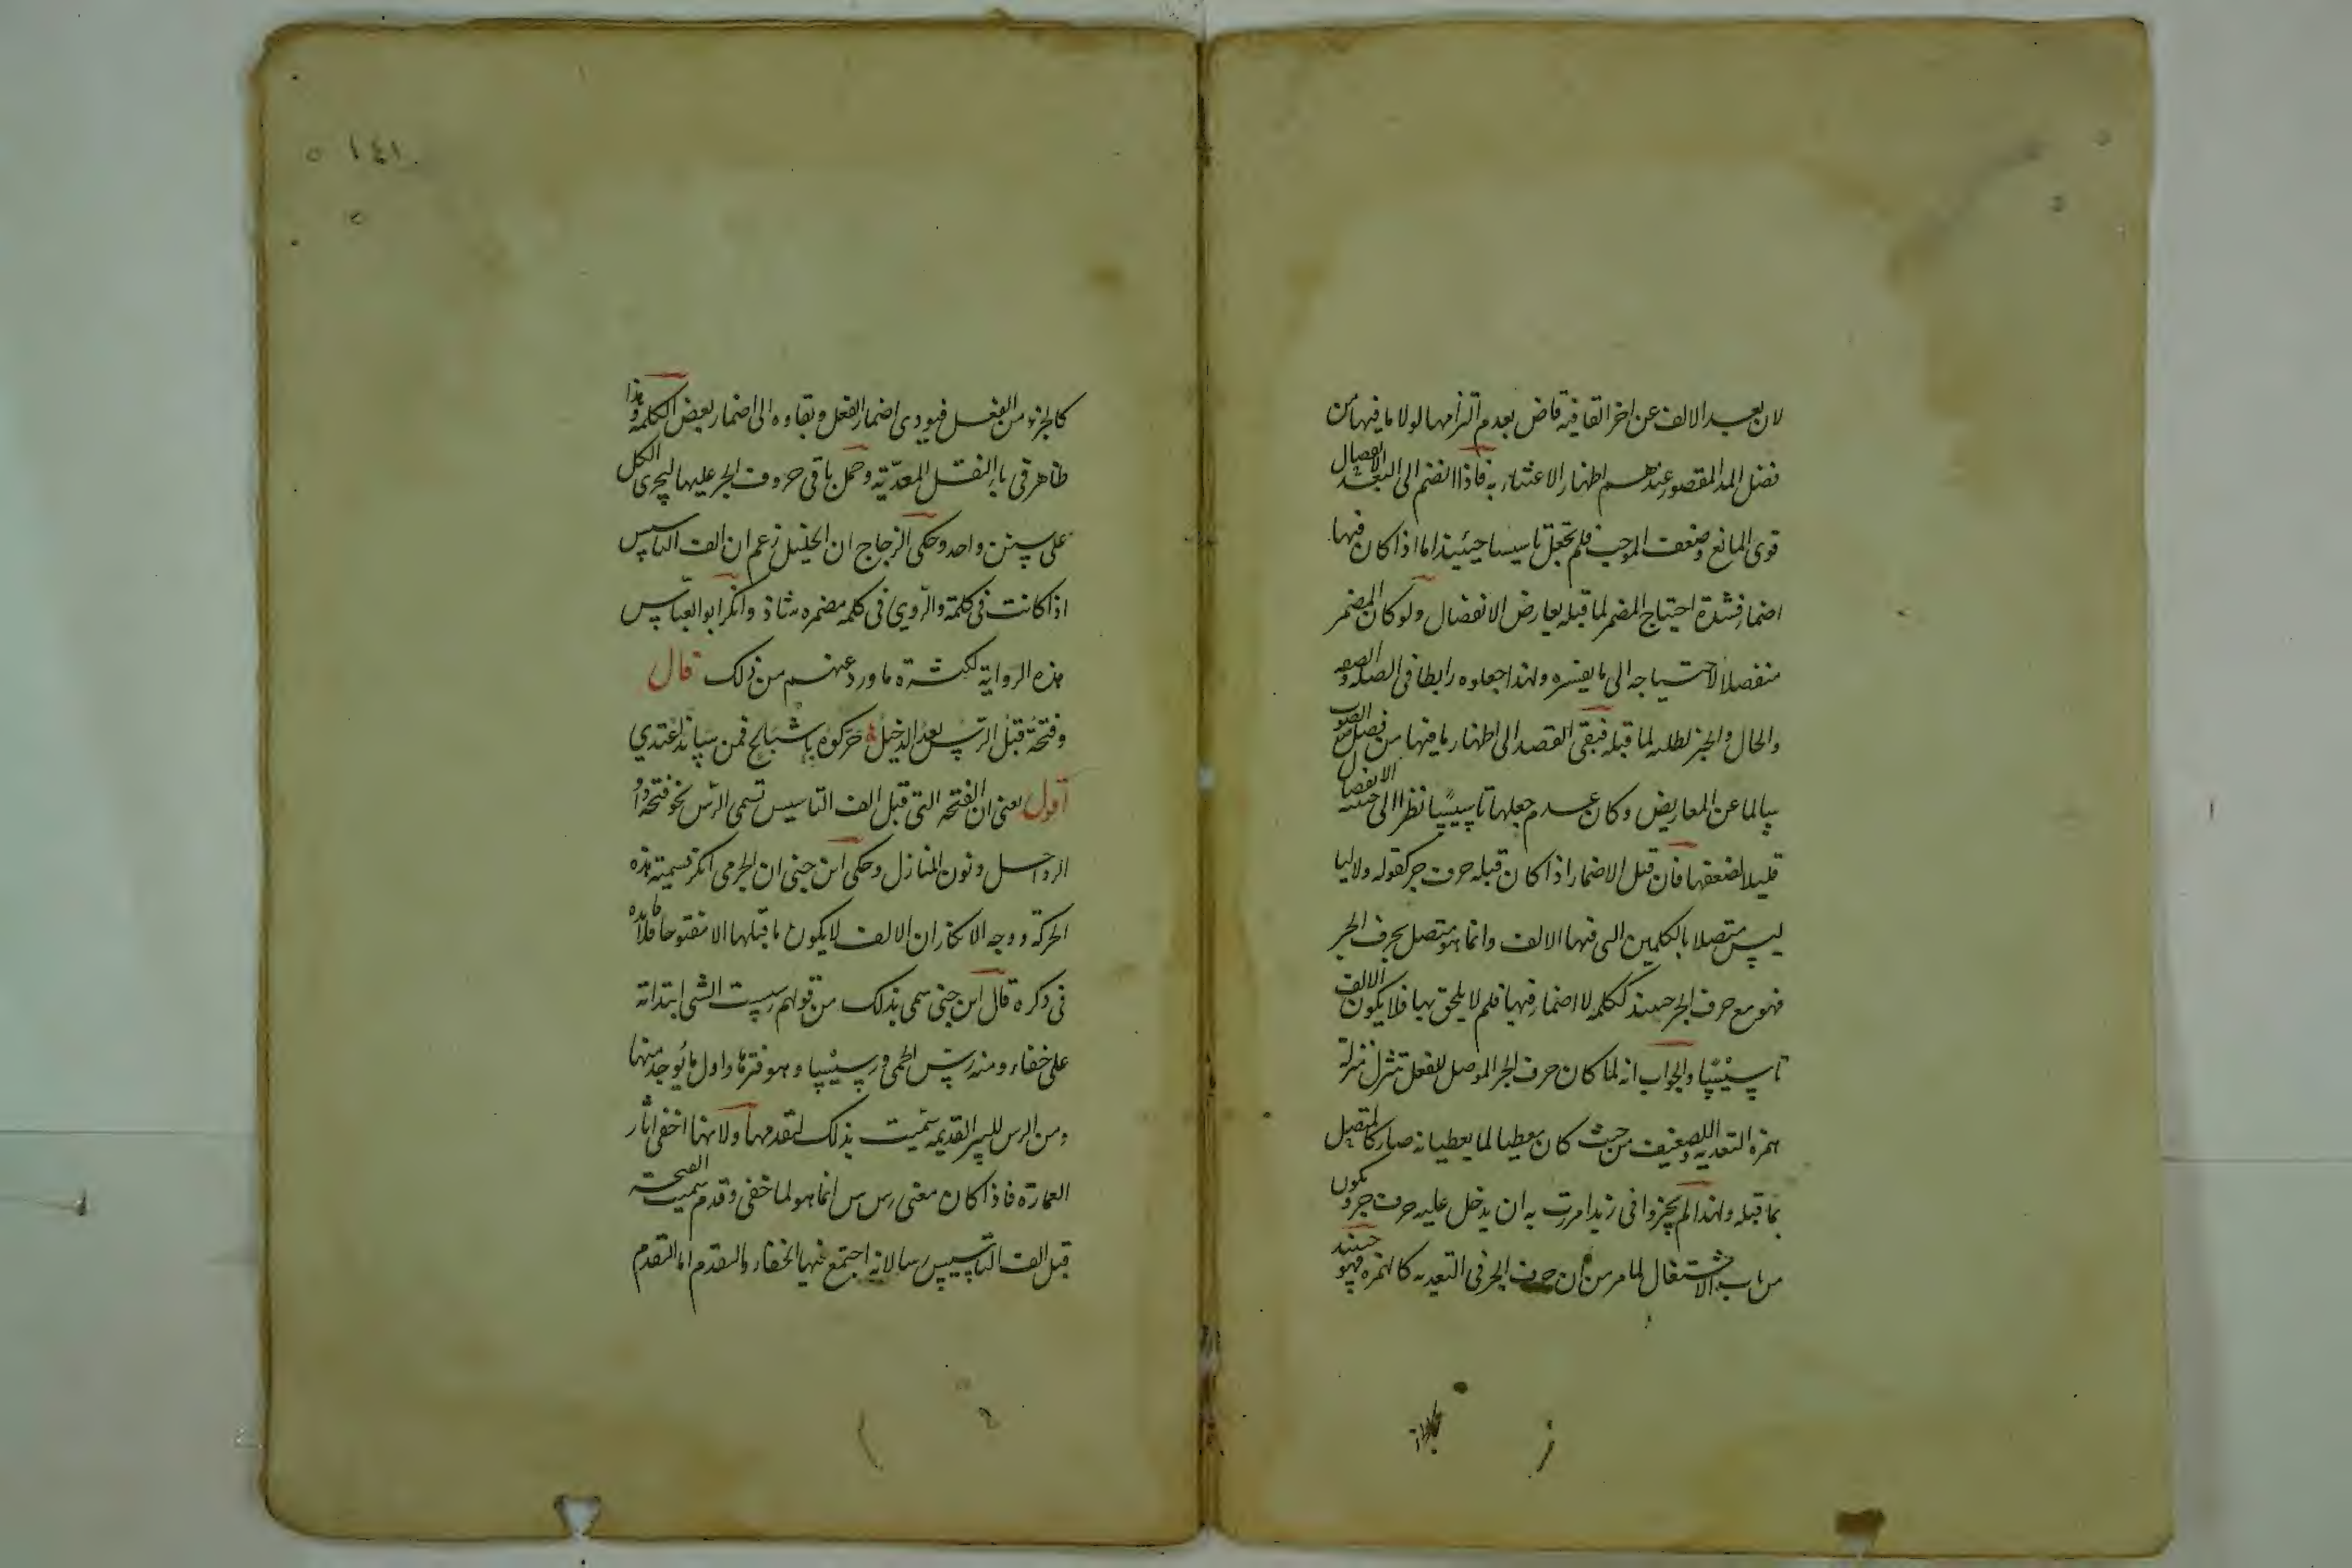 لان بعد الالف عن اخر القافية قاض بعدم التزامها لولا ما فيها من
فضل المد المقصود عندهم اظهار الاعتناء به فاذا انضم الى البعد الانفصال
قوى المانع وضعف الموجب فلم تجعل تاسيسا حينئذ اما اذا كان فيها
اضمار فشدة احتياج المضمر لما قبله يعارض الانفصال ولو كان المضمر
منفصلا لاحتياجه الى ما يفسره ولهذا جعلوه رابطا فى الصله والصفه
والحال والخبر لطلبه لما قبله فبقى القصد الى اظهار ما فيها من فضل الصوت
سالما عن المعارض وكان عدم جعلها تاسيسا نظرا الى الانفصال
قليلا لضعفها فان قيل الاضمار اذا كان قبله حرف جر كقوله ولا ليا
ليس متصلا بالكلمة التى فيها الالف وانما هو متصل بحرف الجر
فهو مع حرف الجر حينئذ ككلمه لا اضمار فيها فلم لا يلحق بها فلا يكون الالف
تاسيسا والجواب انه لما كان حرف الجر الموصل للفعل تنزل منزلة
همزه التعديه والتضعيف من حيث كان معطيا لما يعطيانه صار كالمتصل
بما قبله ولهذا لم يجيزوا فى زيدا مررت به ان يدخل عليه حرف جر ويكون
من باب الاشتغال لما مر من ان حرف الجر فى التعديه كالهمزه فهو حينئذ
١٤١
كالجزء من الفعل فيودى اضمار الفعل وبقاوه الى اضمار بعض الكلمة وهذا
ظاهر فى باء النقل المعدّية وحمل باقى حروف الجر عليها ليجرى الكل
على سنن واحد وحكى الزجاج ان الخليل زعم ان الف التاسيس
اذا كانت فى كلمة والروي فى كلمه مضمره شاذ وانكر ابو العباس
هذه الرواية لكثرة ما ورد عنهم من ذلك قال
وفتحة قبل الرس بعد الدخيل حركوه باشباع فمن ساند اعتدي
اقول يعنى ان الفتحه التى قبل الف التاسيس تسمى الرس نحو فتحة واو
الرواحل ونون المنازل وحكى ابن جنى ان الجرمى انكر تسمية هذه
الحركة ووجه الانكار ان الالف لا يكون ما قبلها الا مفتوحا فلا فايده
فى ذكره قال ابن جنى سمى بذلك من قولهم رسست الشى ابتداته
على خفاء ومنه رس الحمى ورسيسها وهو فترها واول ما يوجد منها
ومن الرس للبير القديمه سميت بذلك لتقدمها ولانها اخفى اثار
العمارة فاذا كان معنى رس س انما هو لما خفى وقدم سميت الفتحة
قبل الف التاسيس رسا لانه اجتمع فيها الخفاء والتقدم اما التقدم